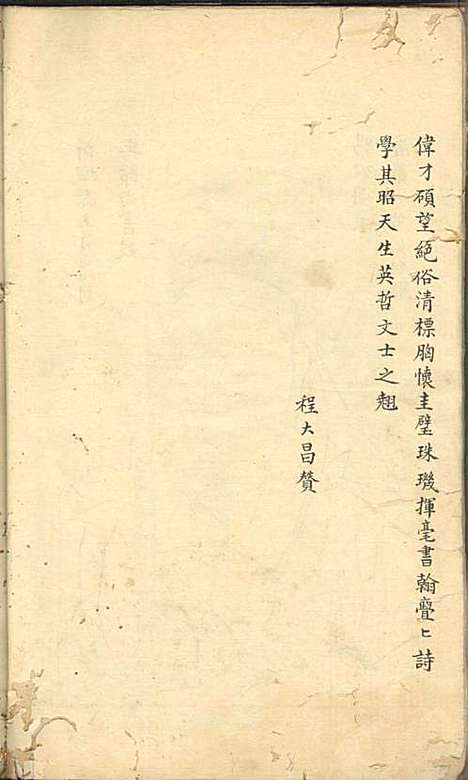 偉才碩望絕俗清標胸懷圭璧珠璣揮毫書翰亹〻詩
學其昭天生英哲文士之翹
程大昌贊